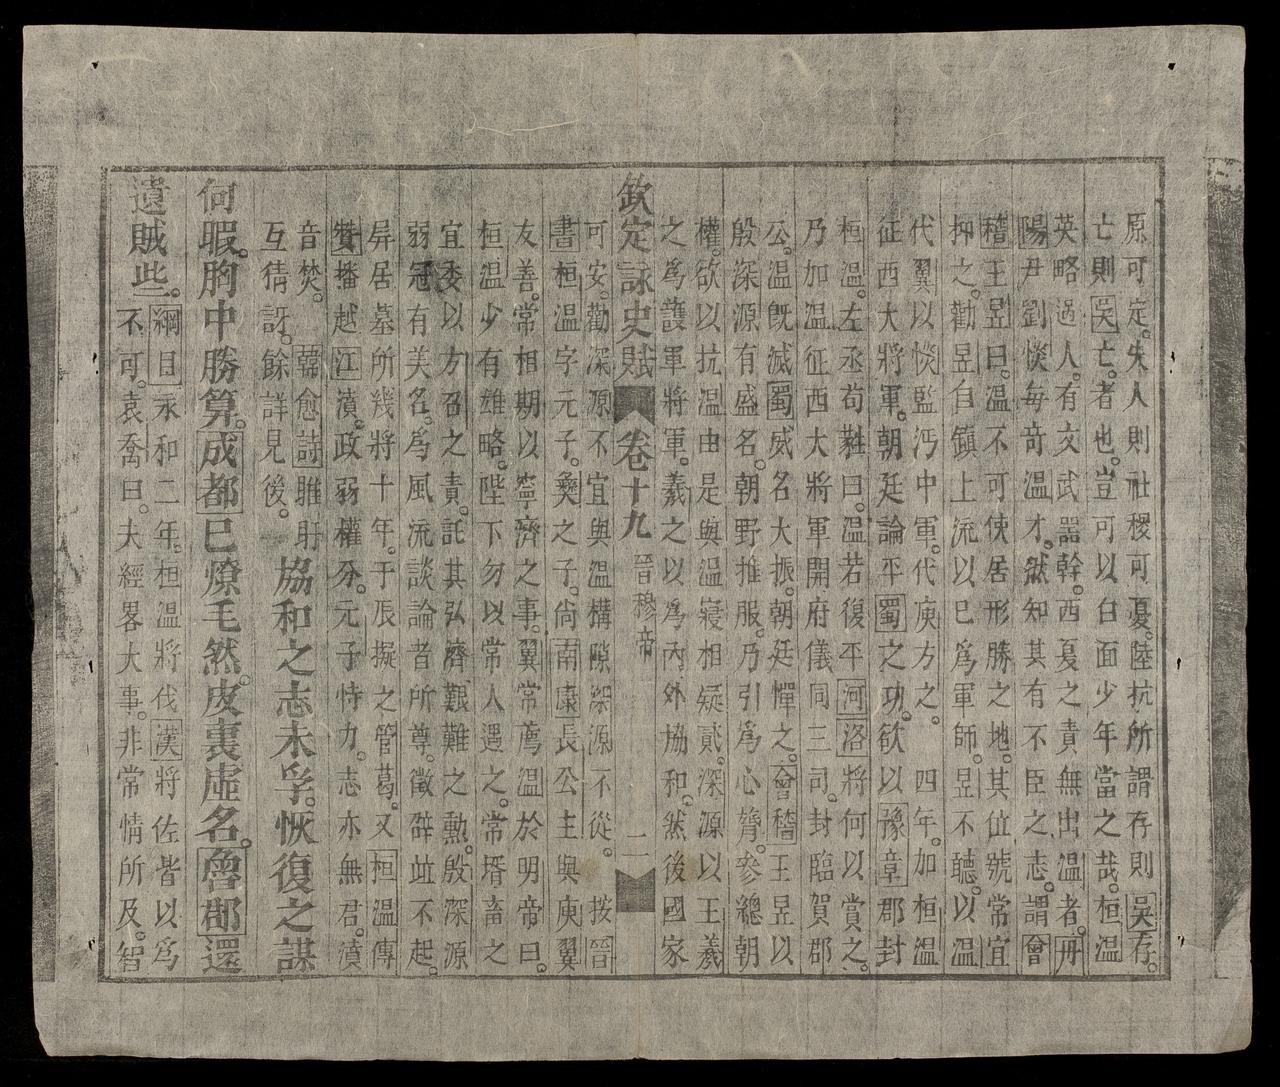 原可定。失人則社稷可憂。陸抗所謂存則吳存。
亡則吳亡。者也。豈可以白面少年當之哉。桓溫
英略過人。有文武噐幹。西夏之責無出溫者。丹
陽尹劉惔每奇溫才。然知其有不臣之志。謂會
稽王昱曰。溫不可使居形勝之地。其位號常宜
抑之。勸昱自鎮上流以已爲軍師。昱不聽。以溫
代翼以惔監沔中軍。代庾方之。 四年。加桓溫
征西大將軍。朝廷論平蜀之功。欲以豫章郡封
桓溫。左丞荀蕤曰。溫若復平河洛將何以賞之。
乃加溫征西大將軍開府儀同三司。封臨賀郡
公。溫旣滅蜀威名大振。朝廷憚之。會稽王昱以
殷深源有盛名。朝野推服。乃引爲心膂。參總朝
權。欲以抗溫由是與溫寖相疑貳。深源以王羲
之爲護軍將軍。羲之以爲內外協和。然後國家
欽定詠史賦 卷十九 晉穆帝 二
可安。勸深源不宜與溫構隙深源不從。 按晉
書桓溫字元子。彝之子。尙南康長公主與庾翼
友善。常相期以寧濟之事。翼常薦溫於明帝曰。
桓溫少有雄略。陛下勿以常人遇之。常壻畜之
宜委以方召之責。託其弘濟艱難之勳。殷深源
弱冠有美名。爲風流談論者所尊。徵辟竝不起。
屏居墓所幾將十年。于辰擬之管葛。又桓溫傳
贊播越江濆。政弱權分。元子恃力。志亦無君。濆
音焚。韓愈詩雎盱
互猜訝。餘詳見後。
協和之志未孚。恢復之謀
何暇。胸中勝算。成都已燎毛然。皮裏虛名。魯郡還
遺賊些。
綱目永和二年。桓溫將伐漢將佐皆以爲
不可。袁喬曰。夫經畧大事。非常情所及。智